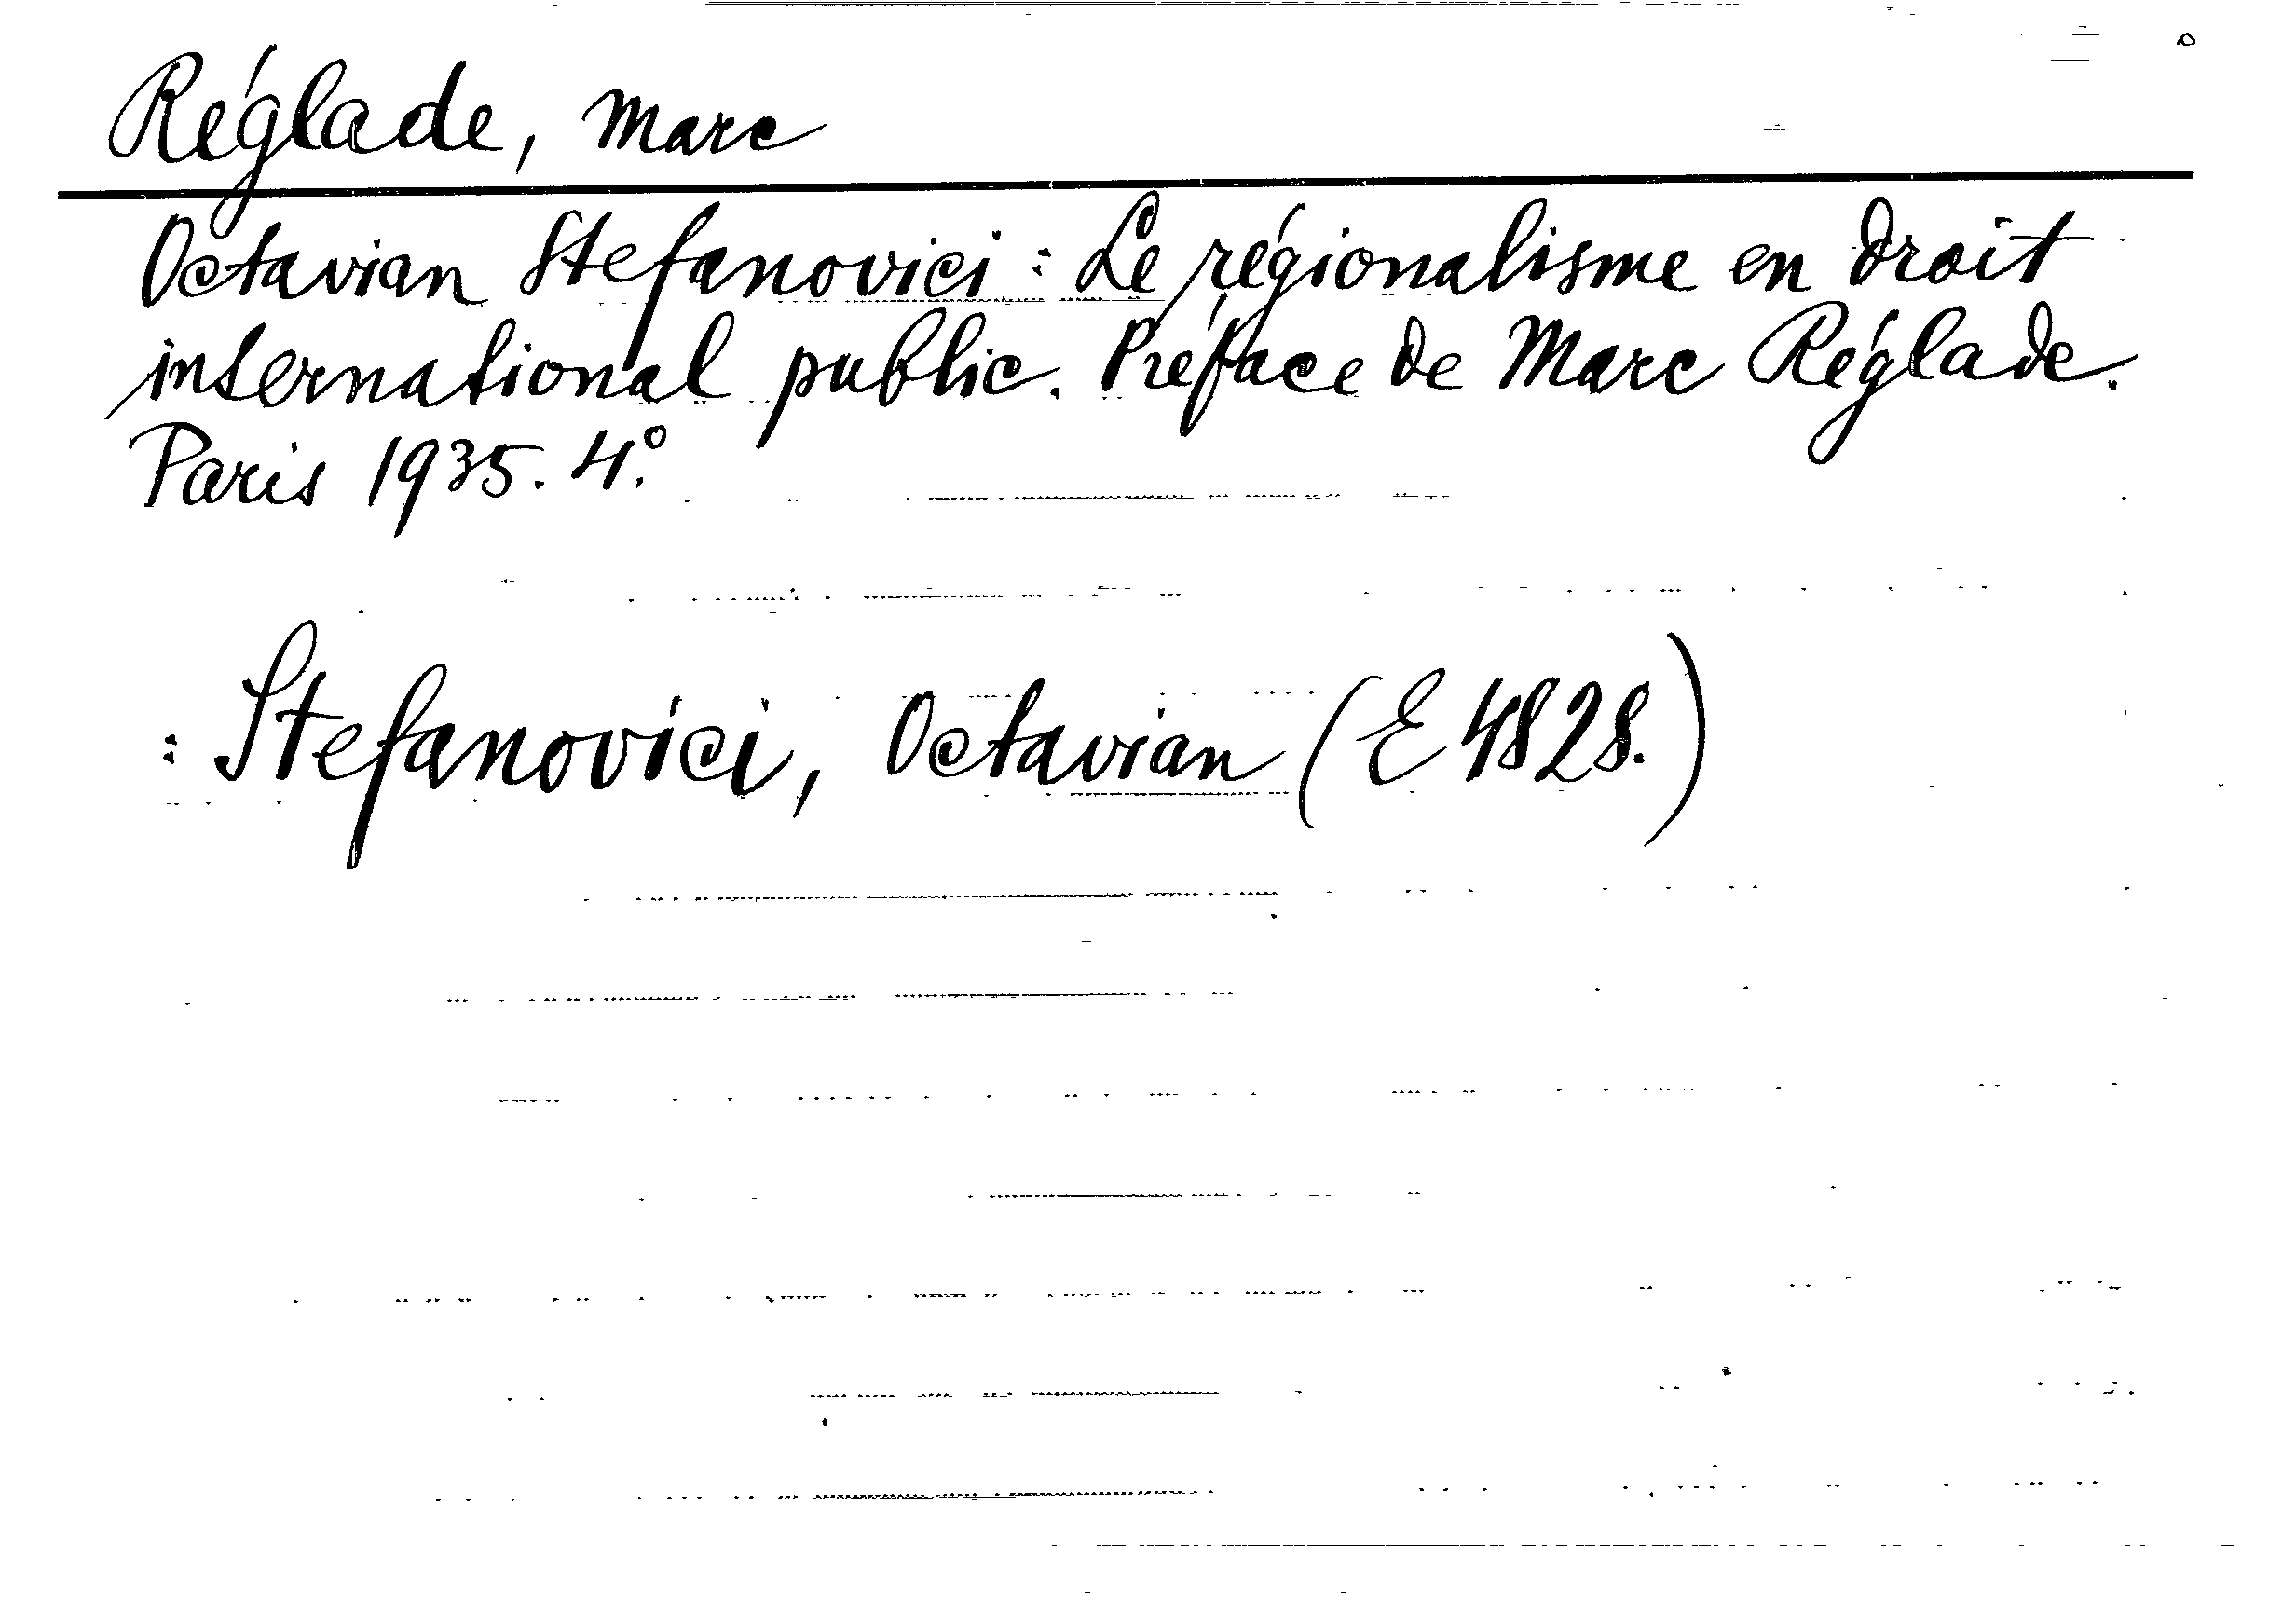 Réglade, Marc
Octavian Stefanovici: Le régionalisme en droit
international public. Préface de Marc Réglade.
Paris 1935. 4°.
: Stefanovici, Octavian (E 4828.)